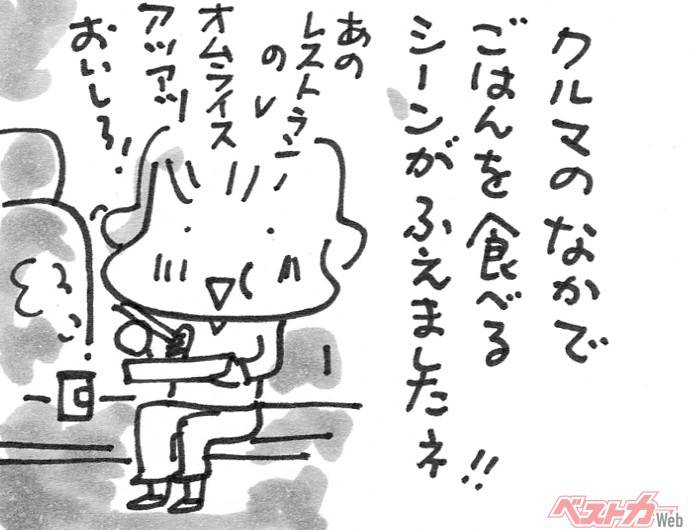 クルマのなかで
ごはんを食べる
シーンがふえましたネ!!
あの
レストラン
の
オムライス
アツアツ
おいしそ!
ベストカーWeb